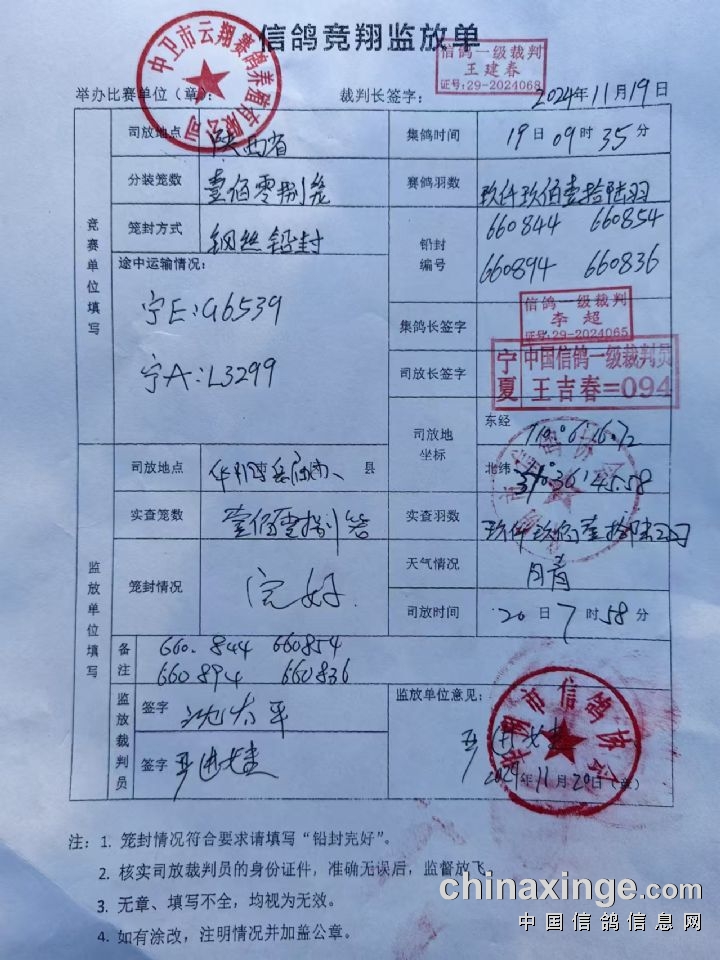 信鸽竞翔监放单
中卫市云翔赛鸽养殖有限公司
信鸽一级裁判
王建春
证号:29-2024068
举办比赛单位（章）：
裁判长签字：
2024年11月19日
竞赛单位填写
司放地点
陕西省
集鸽时间
19日09时35分
分装笼数
壹佰零捌笼
赛鸽羽数
玖仟玖佰壹拾陆羽
笼封方式
钢丝铅封
铅封编号
660844 660854
660894 660836
途中运输情况：
宁E:G6539
宁A:L3299
集鸽长签字
信鸽一级裁判
李超
证号:29-2024065
司放长签字
宁夏
中国信鸽一级裁判员
王吉春=094
司放地坐标
东经
北纬
监放单位填写
司放地点
县
实查笼数
实查羽数
笼封情况
完好
天气情况
晴
司放时间
20日7时58分
备注
660.844 660854
660894 660836
监放裁判员
签字
签字
监放单位意见：
市信鸽协
2024年11月20日（章）
注：1. 笼封情况符合要求请填写“铅封完好”。
2. 核实司放裁判员的身份证件，准确无误后，监督放飞。
3. 无章、填写不全，均视为无效。
4. 如有涂改，注明情况并加盖公章。
chinaxinge.com
中国信鸽信息网